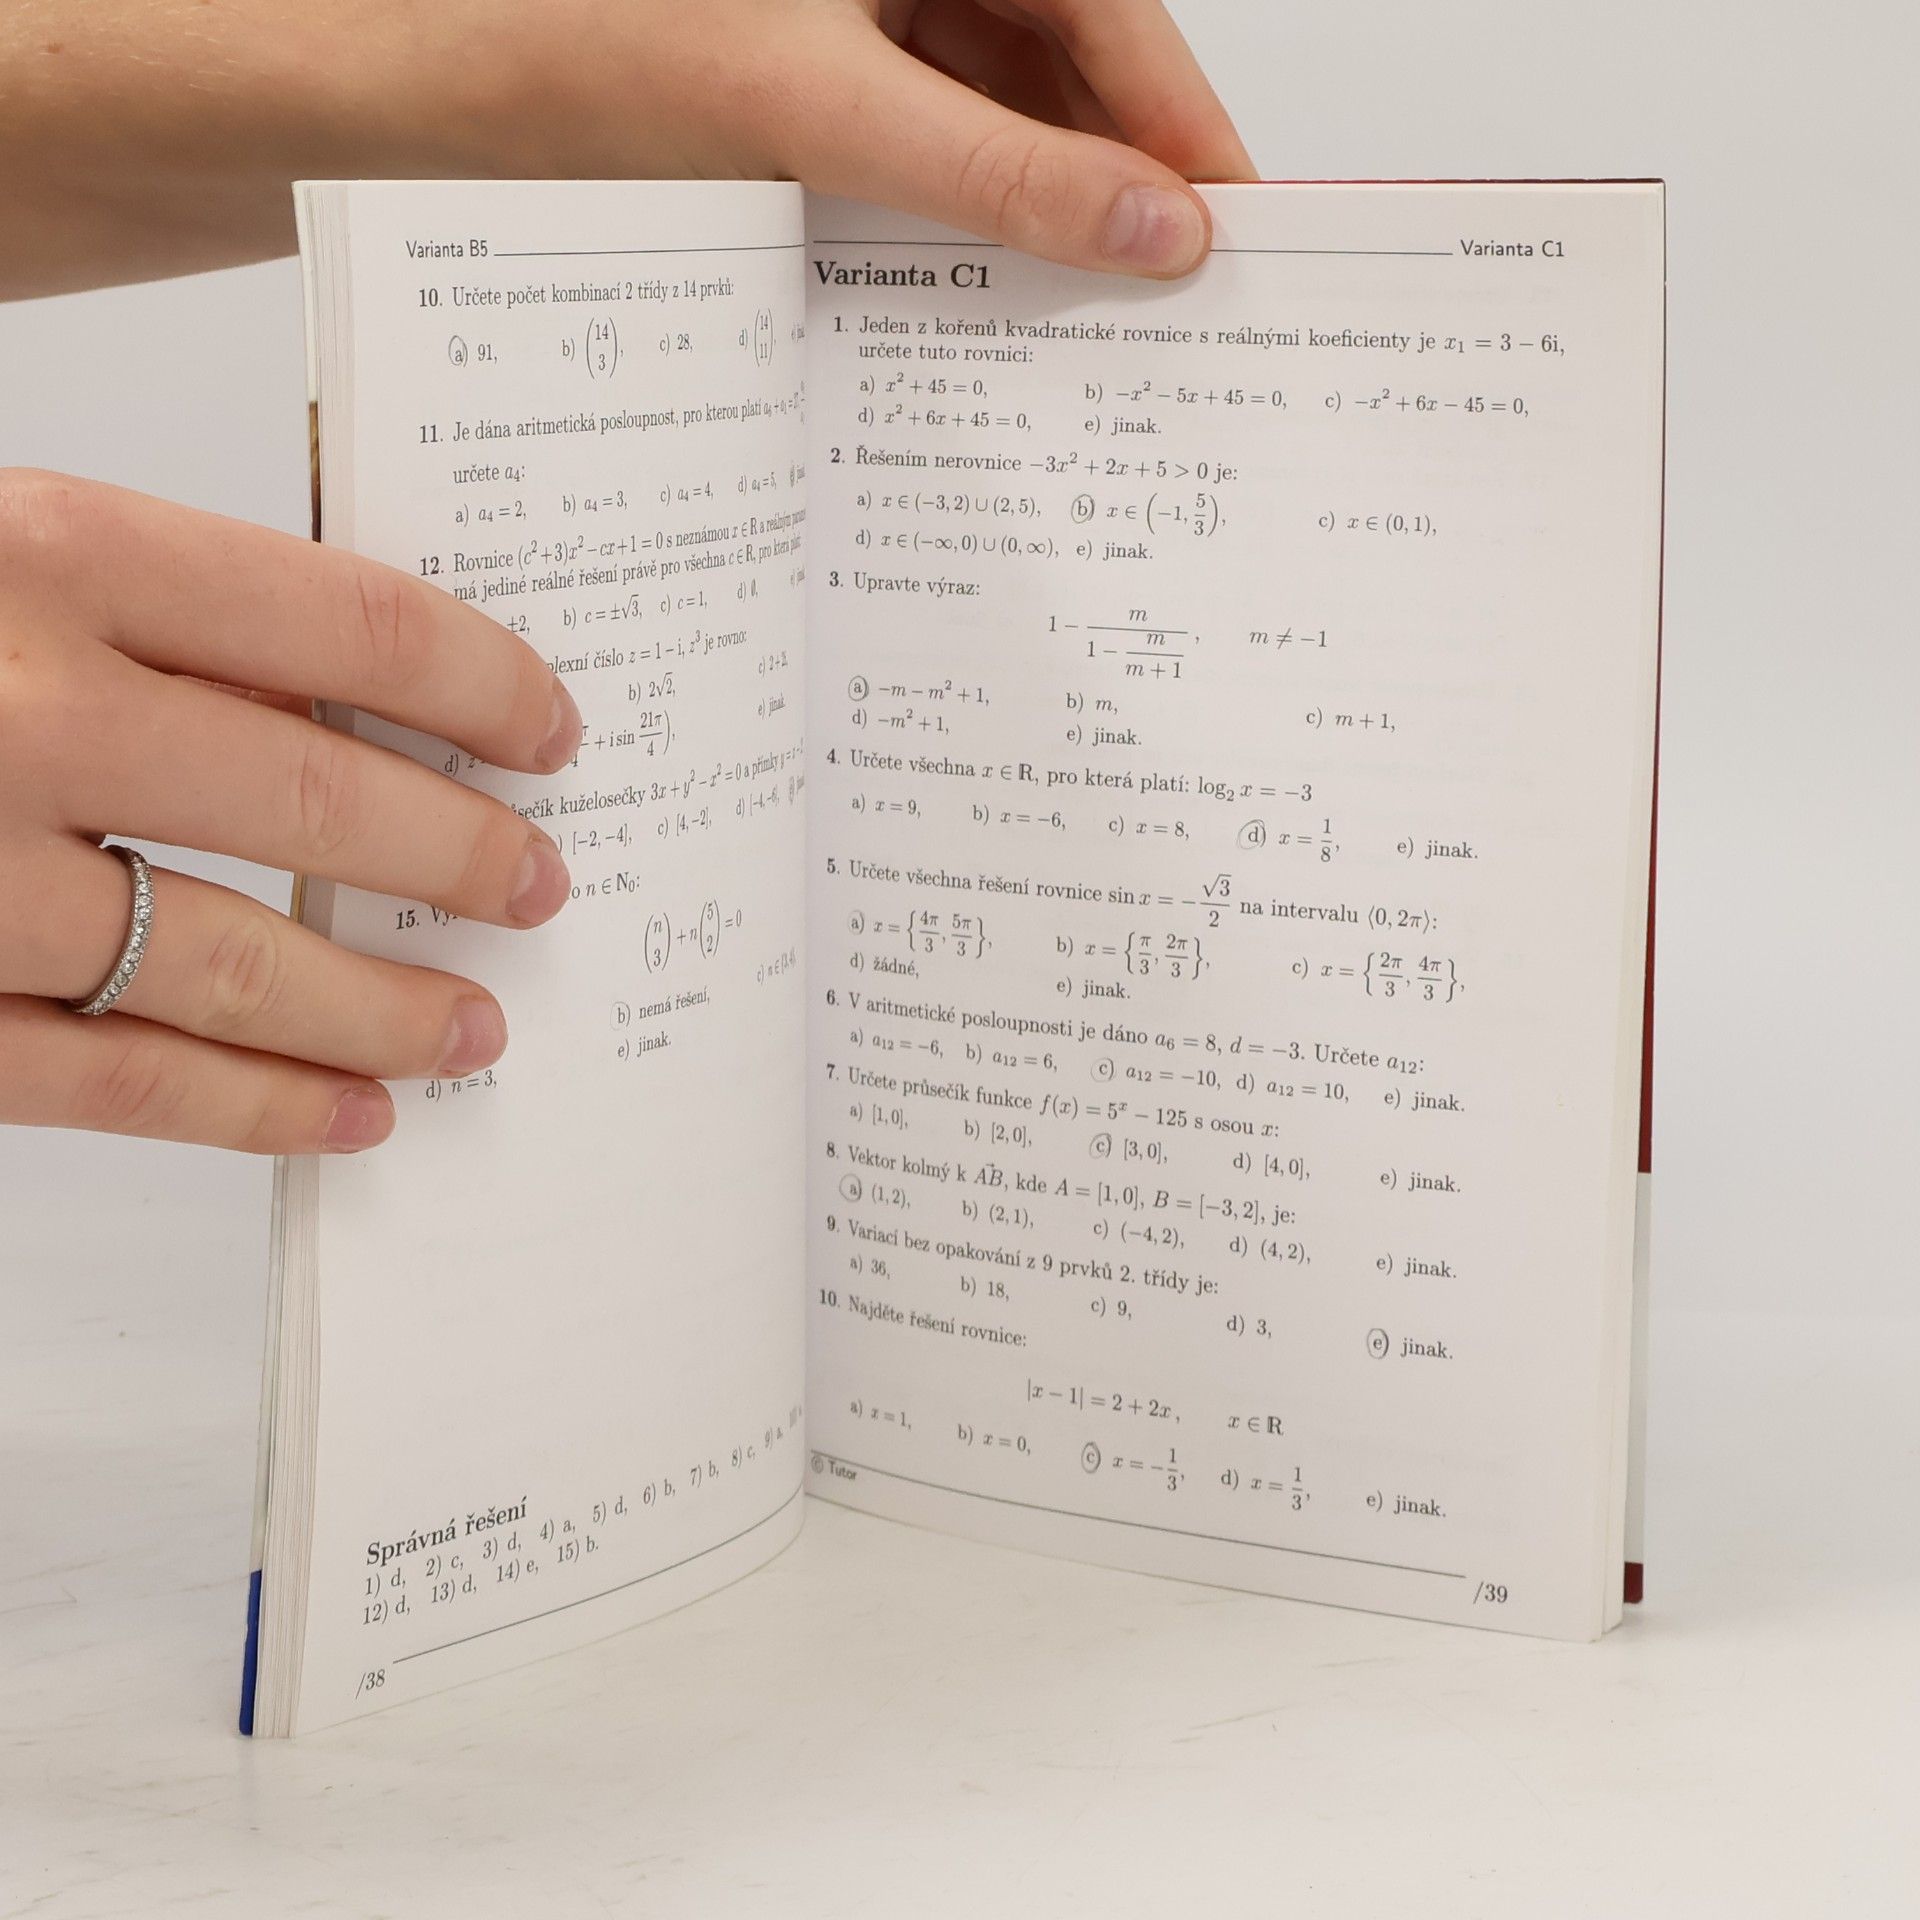 Varianta B5
10. Určete počet kombinací 2 třídy z 14 prvků:
a) 91, b) (14 3), c) 28, d) (14 11),
11. Je dána aritmetická posloupnost, pro kterou platí
určete a₄:
a) a₄ = 2, b) a₄ = 3, c) a₄ = 4, d) a₄ = 5,
12. Rovnice (c² + 3)x² − cx + 1 = 0 s neznámou x ∈ R a reálným
má jediné reálné řešení právě pro všechna c ∈ R, pro která platí
±2, b) c = ±√3, c) c = 1, d) 0,
číslo z = 1 − i, z³ je rovno:
b) 2√2, c) 2 + 2i,
+ i sin 21π/4), e) jinak.
d)
kuželosečky 3x + y² − x² = 0 a přímky
[−2, −4], c) [4, −2], d) [−4, −6],
15. n ∈ N₀:
(n 3) + n(5 2) = 0
b) nemá řešení,
e) jinak.
d) n = 3,
Správná řešení
1) d, 2) c, 3) d, 4) a, 5) d, 6) b, 7) b, 8) c, 9) a,
12) d, 13) d, 14) e, 15) b.
/38
Varianta C1
Varianta C1
1. Jeden z kořenů kvadratické rovnice s reálnými koeficienty je x₁ = 3 − 6i,
určete tuto rovnici:
a) x² + 45 = 0, b) −x² − 5x + 45 = 0, c) −x² + 6x − 45 = 0,
d) x² + 6x + 45 = 0, e) jinak.
2. Řešením nerovnice −3x² + 2x + 5 > 0 je:
a) x ∈ (−3, 2) ∪ (2, 5), b) x ∈ (−1, 5/3), c) x ∈ (0, 1),
d) x ∈ (−∞, 0) ∪ (0, ∞), e) jinak.
3. Upravte výraz:
1 − m/(1 − m/(m + 1)), m ≠ −1
a) −m − m² + 1, b) m, c) m + 1,
d) −m² + 1, e) jinak.
4. Určete všechna x ∈ R, pro která platí: log₂ x = −3
a) x = 9, b) x = −6, c) x = 8, d) x = 1/8, e) jinak.
5. Určete všechna řešení rovnice sin x = −√3/2 na intervalu ⟨0, 2π⟩:
a) x = {4π/3, 5π/3}, b) x = {π/3, 2π/3}, c) x = {2π/3, 4π/3},
d) žádné, e) jinak.
6. V aritmetické posloupnosti je dáno a₆ = 8, d = −3. Určete a₁₂:
a) a₁₂ = −6, b) a₁₂ = 6, c) a₁₂ = −10, d) a₁₂ = 10, e) jinak.
7. Určete průsečík funkce f(x) = 5ˣ − 125 s osou x:
a) [1, 0], b) [2, 0], c) [3, 0], d) [4, 0], e) jinak.
8. Vektor kolmý k AB⃗, kde A = [1, 0], B = [−3, 2], je:
a) (1, 2), b) (2, 1), c) (−4, 2), d) (4, 2), e) jinak.
9. Variací bez opakování z 9 prvků 2. třídy je:
a) 36, b) 18, c) 9, d) 3, e) jinak.
10. Najděte řešení rovnice:
|x − 1| = 2 + 2x, x ∈ R
a) x = 1, b) x = 0, c) x = −1/3, d) x = 1/3, e) jinak.
© Tutor
/39